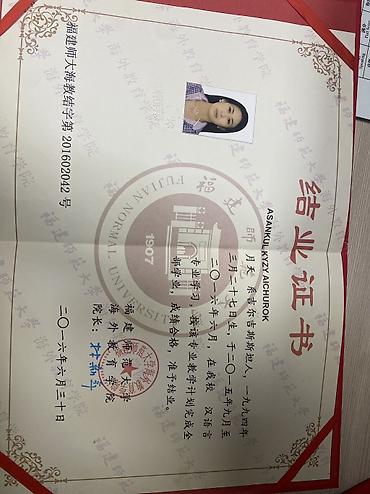 结业证书
ASANKUL KYZY AICHUROK
月天 系吉尔吉斯斯坦人，一九九四年
三月二十七日生，于二〇一五年九月至
二〇一六年六月，在我校 汉语言
专业学习，按该专业教学计划完成全
部学业，成绩合格，准予结业。
福建师范大学
海外教育学院
院长：
二〇一六年六月三十日
福建师大海教结字第 201602042 号
福建师
FUJIAN NORMAL UNIVERSITY
1907
福建师范大学海外教育学院